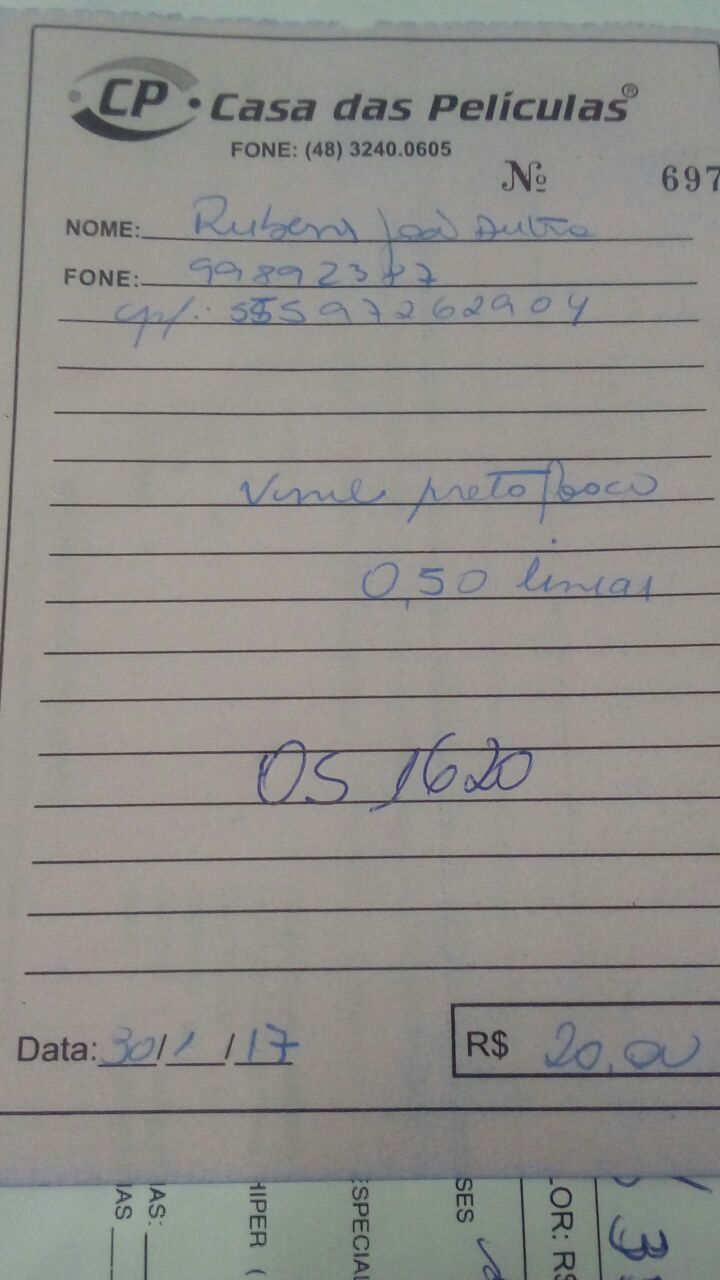 CP Casa das Películas®
FONE: (48) 3240.0605
Nº 697
NOME: Rubens João Dutra
FONE: 99892387
cpf.: 55597262904
Vinil preto fosco
0,50 linear
OS 1620
Data: 30/1/17 R$ 20,00
IAS
IAS:
HIPER (
ESPECIAL
SES
LOR: R$
3